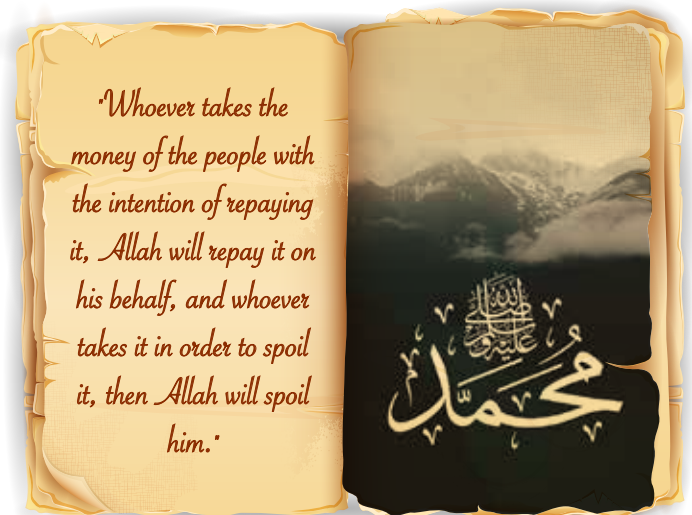 "Whoever takes the
money of the people with
the intention of repaying
it, Allah will repay it on
his behalf, and whoever
takes it in order to spoil
it, then Allah will spoil
him."
صلى الله عليه وسلم
محمد